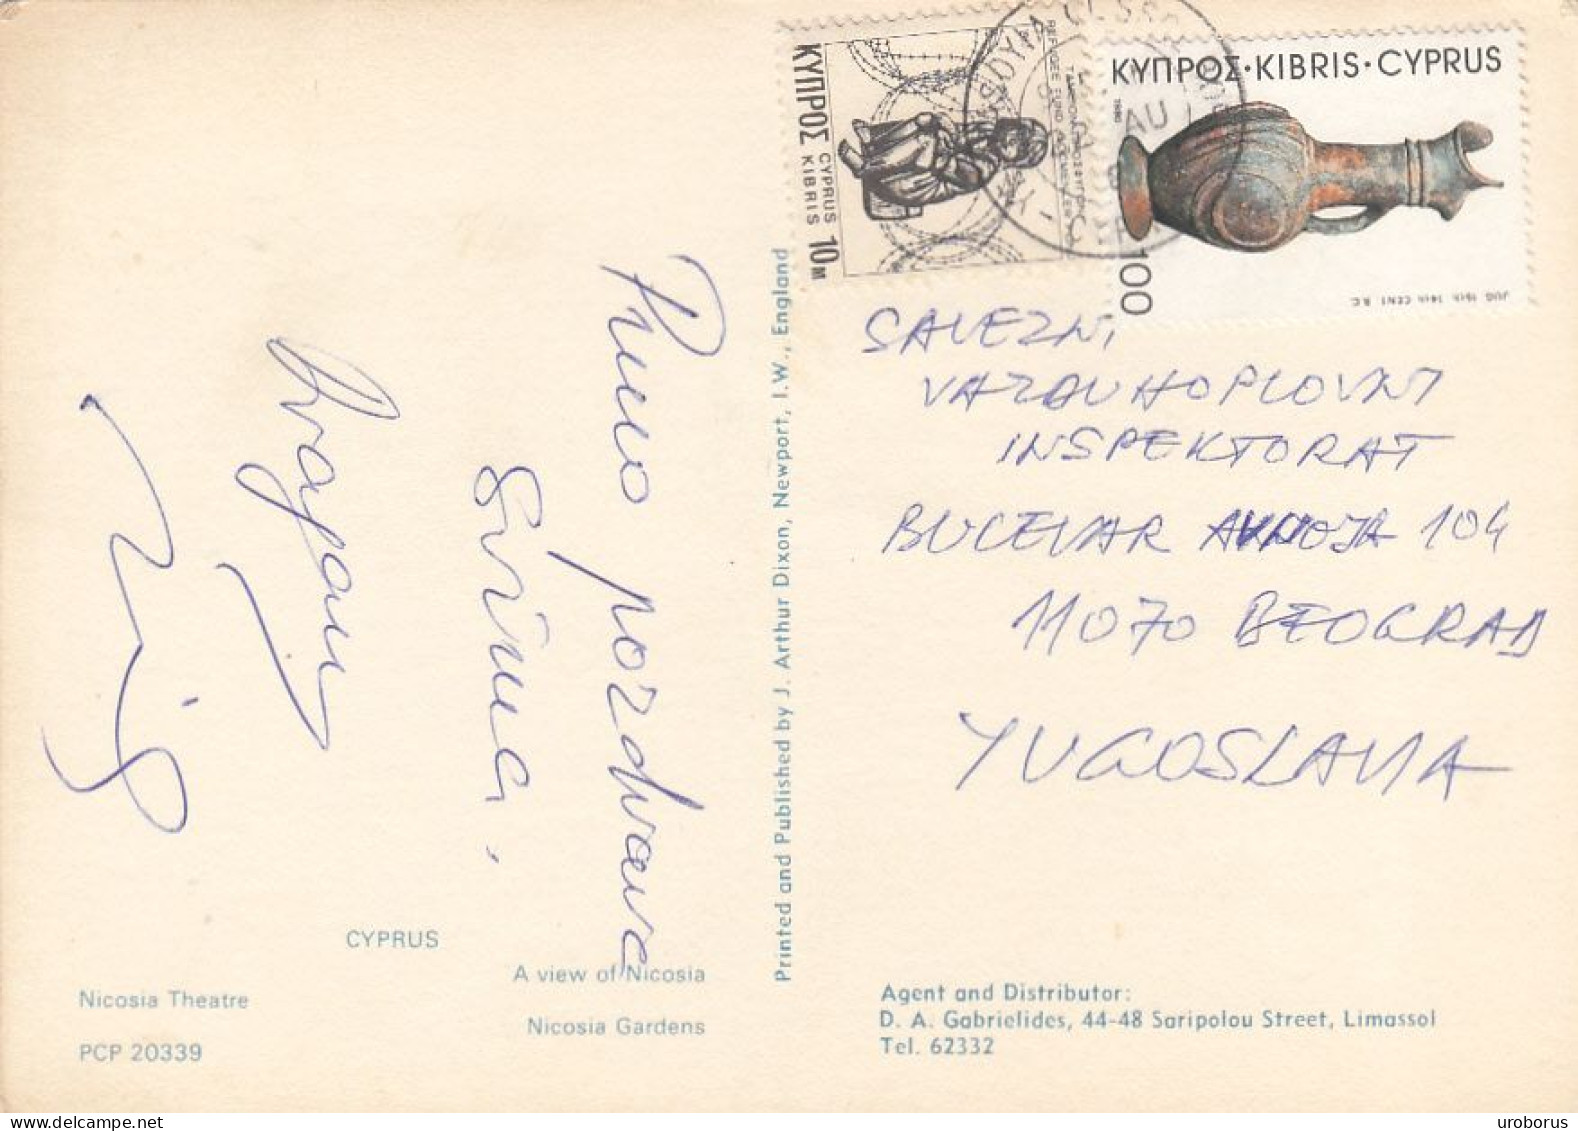 ΚΥΠΡΟΣ
CYPRUS
KIBRIS 10M
REFUGEE FUND
ΚΥΠΡΟΣ·KIBRIS·CYPRUS
1980
100
JUG 15th 14th CENT B.C.
AU
Puno pozdrava
svima,
Dragan
SAVEZNI
VAZDUHOPLOVNI
INSPEKTORAT
BULEVAR AVNOJA 104
11070 BEOGRAD
YUGOSLAVIA
Printed and Published by J. Arthur Dixon, Newport, I.W., England
CYPRUS
A view of Nicosia
Nicosia Theatre
Nicosia Gardens
PCP 20339
Agent and Distributor:
D. A. Gabrielides, 44-48 Saripolou Street, Limassol
Tel. 62332
uroborus